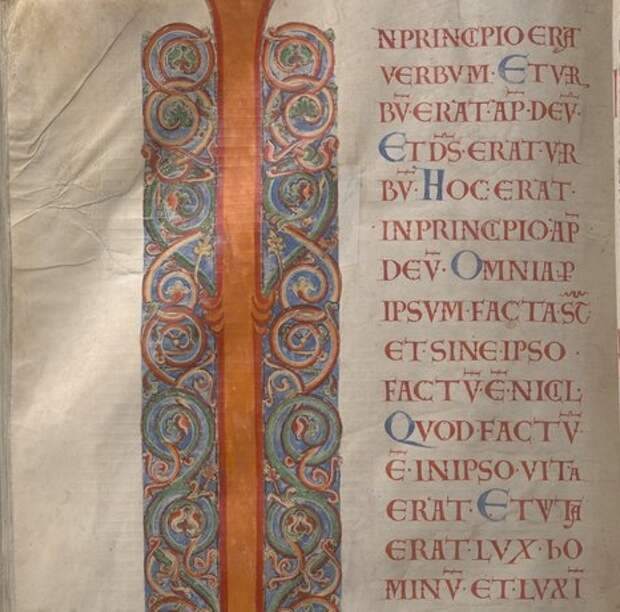 NPRINCIPIO ERA̅T
VERBVM · ET VER
BV̅ · ERAT · AP̅ · DEV̅ ·
ET D̅S · ERAT · VER
BV̅ · HOC · ERAT ·
IN PRINCIPIO · AP̅
DEV̅ · OMNIA · P̲
IPSVM · FACTA · ST̅
ET · SINE · IPSO ·
FACTV̅ · E̅ · NICHIL
QVOD · FACTV̅ ·
E̅ · IN IPSO · VITA
ERAT · ET VITA
ERAT · LVX · hO
MINV̅ · ET · LVX I